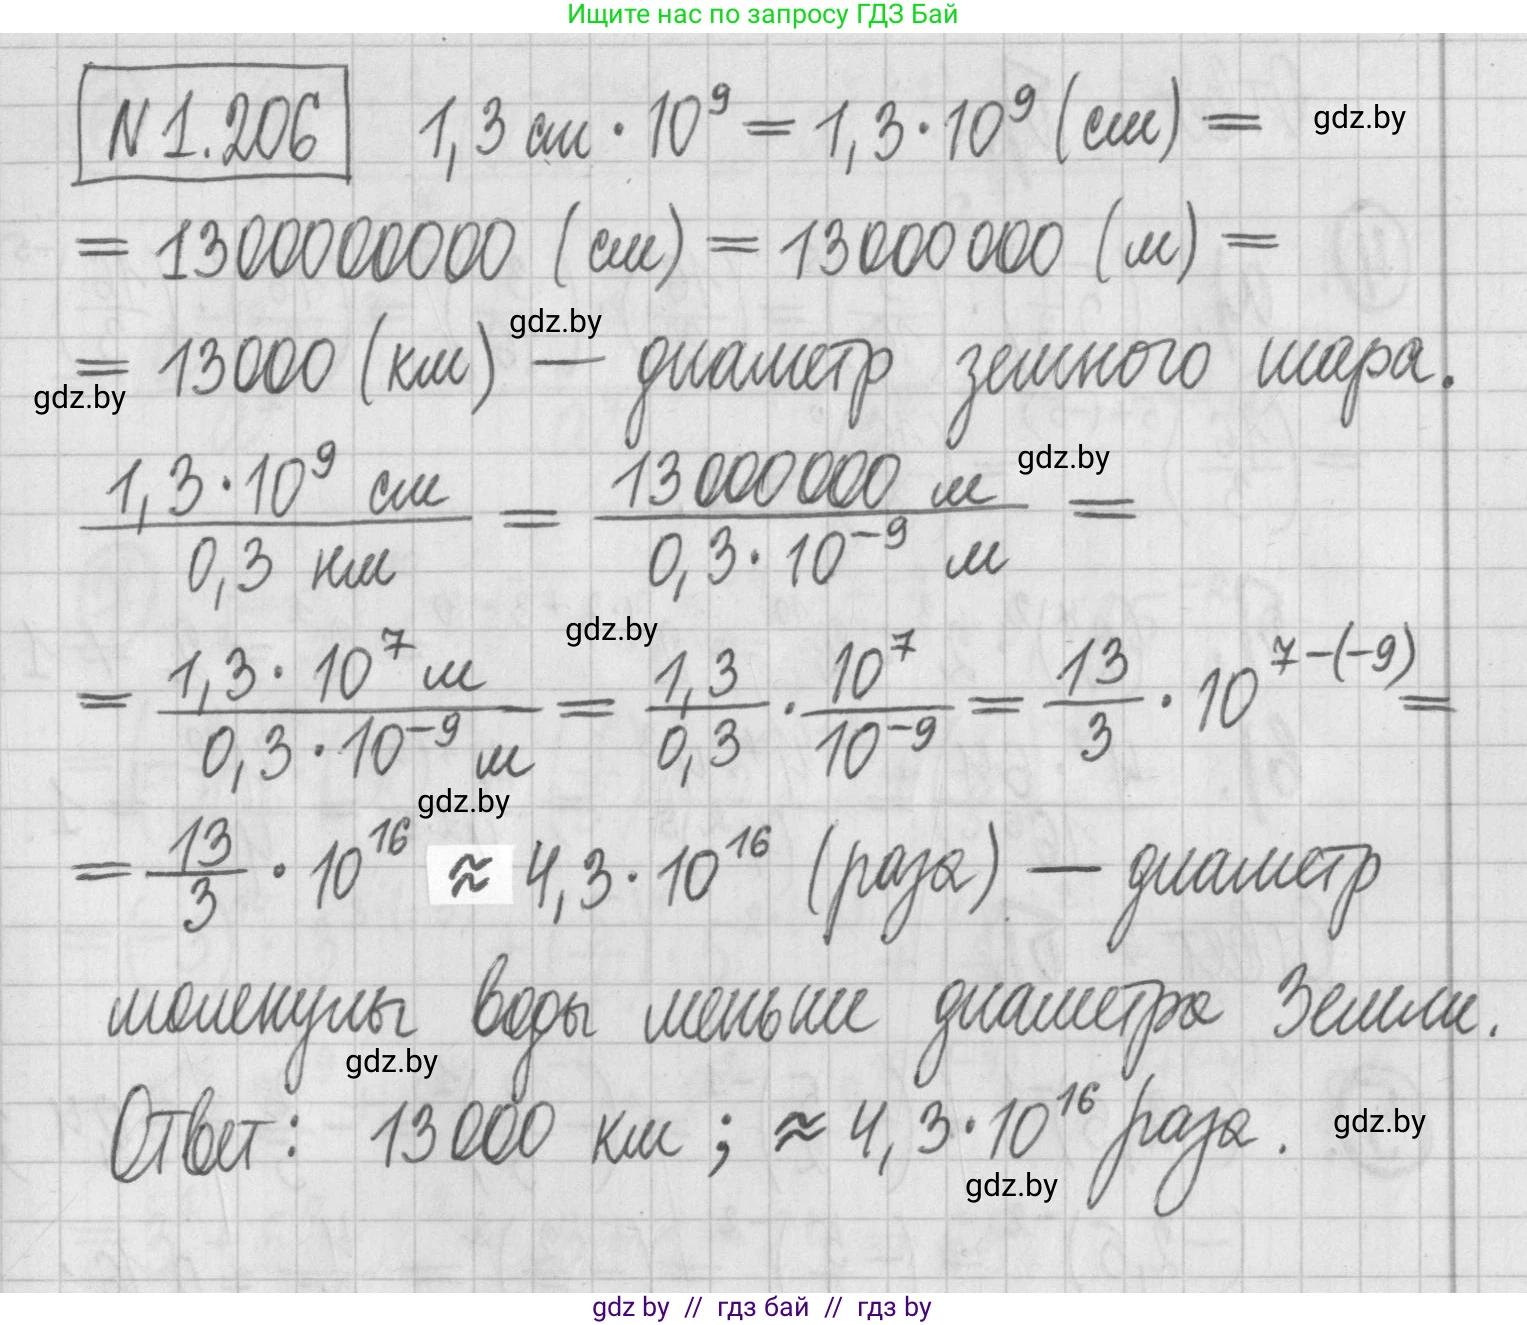 Ищите нас по запросу ГДЗ Бай
N 1.206 1,3 см · 10⁹ = 1,3 · 10⁹ (см) = gdz.by
= 1300000000 (см) = 13000000 (м) =
gdz.by
= 13000 (км) — диаметр земного шара.
gdz.by
1,3 · 10⁹ см / 0,3 нм = 13000000 м / 0,3 · 10⁻⁹ м = gdz.by
gdz.by
= 1,3 · 10⁷ м / 0,3 · 10⁻⁹ м = 1,3 / 0,3 · 10⁷ / 10⁻⁹ = 13 / 3 · 10⁷⁻⁽⁻⁹⁾ =
gdz.by
= 13 / 3 · 10¹⁶ ≈ 4,3 · 10¹⁶ (раза) — диаметр
молекулы воды меньше диаметра Земли.
gdz.by
Ответ: 13000 км ; ≈ 4,3 · 10¹⁶ раза. gdz.by
gdz.by
gdz by // гдз бай // гдз by